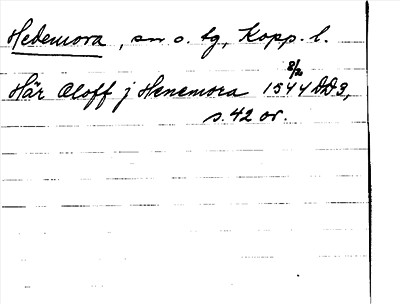 Hedemora, sn o. tg, Kopp. l.
Här Oloff j Henemora 8/2 1544 DD3,
s. 42 or.